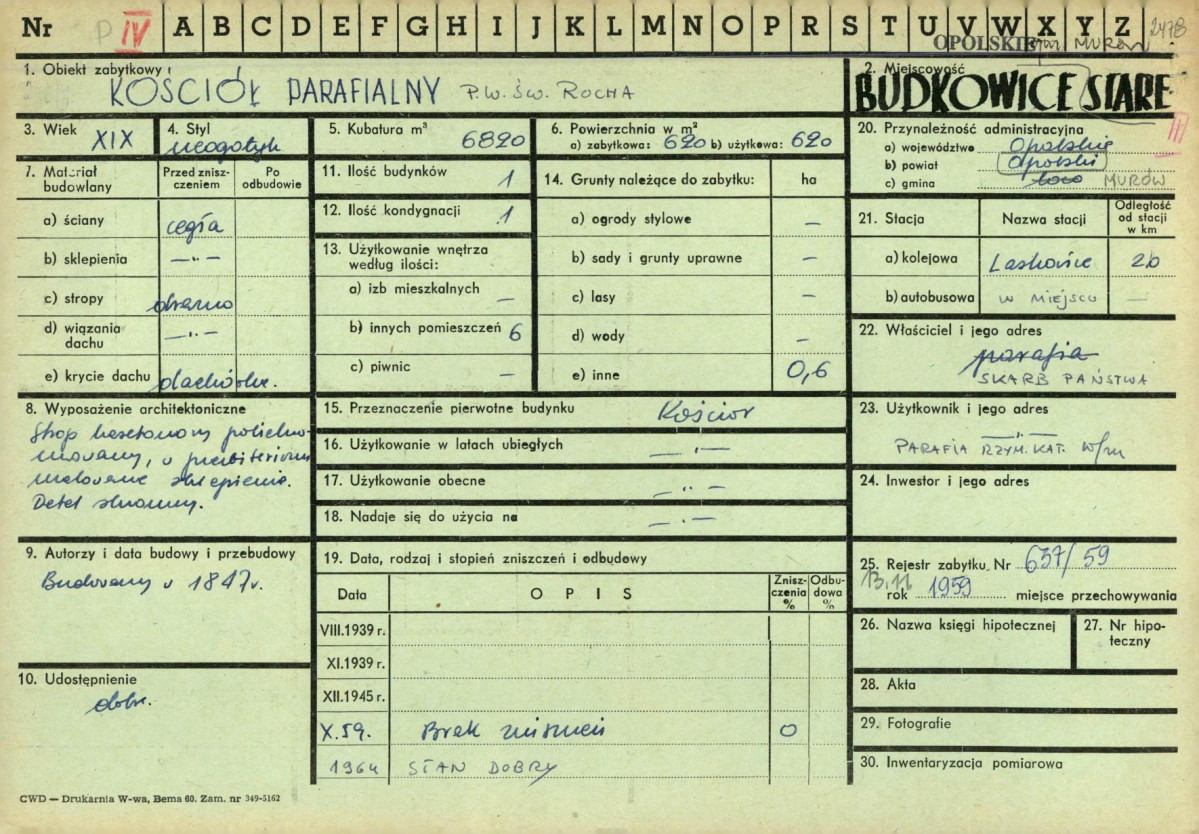 Nr P IV A B C D E F G H I J K L M N O P R S T U V W X Y Z 2478
OPOLSKIE gm. MURÓW
1. Obiekt zabytkowy
KOŚCIÓŁ PARAFIALNY P.W. ŚW. ROCHA
2. Miejscowość
BUDKOWICE STARE
3. Wiek XIX
4. Styl
neogotyk
5. Kubatura m³
6820
6. Powierzchnia w m²
a) zabytkowa: 620 b) użytkowa: 620
7. Materiał budowlany
Przed zniszczeniem
Po odbudowie
a) ściany cegła
b) sklepienia —„—
c) stropy drewno
d) wiązania dachu —„—
e) krycie dachu dachówka.
8. Wyposażenie architektoniczne
Strop kasetonowy polichro-
mowany, w prezbiterium
malowane sklepienie.
Detal skromny.
9. Autorzy i data budowy i przebudowy
Budowany w 1847 r.
10. Udostępnienie
dobre.
11. Ilość budynków 1
12. Ilość kondygnacji 1
13. Użytkowanie wnętrza
według ilości:
a) izb mieszkalnych —
b) innych pomieszczeń 6
c) piwnic —
14. Grunty należące do zabytku: ha
a) ogrody stylowe —
b) sady i grunty uprawne —
c) lasy —
d) wody —
e) inne 0,6
15. Przeznaczenie pierwotne budynku Kościół
16. Użytkowanie w latach ubiegłych —„—
17. Użytkowanie obecne —„—
18. Nadaje się do użycia na —„—
19. Data, rodzaj i stopień zniszczeń i odbudowy
Data OPIS Zniszczenia % Odbudowa %
VIII.1939 r.
XI.1939 r.
XII.1945 r.
X.59. Brak zniszczeń 0
1964 STAN DOBRY
20. Przynależność administracyjna
a) województwo Opolskie
b) powiat Opolski
c) gmina loco MURÓW
II
21. Stacja
Nazwa stacji
Odległość od stacji w km
a) kolejowa Laskowice 20
b) autobusowa W MIEJSCU —
22. Właściciel i jego adres
parafia
SKARB PAŃSTWA
23. Użytkownik i jego adres
—„—
PARAFIA RZYM. KAT. w/m
24. Inwestor i jego adres
25. Rejestr zabytku Nr 637/59
13.11
rok 1959 miejsce przechowywania
26. Nazwa księgi hipotecznej
27. Nr hipoteczny
28. Akta
29. Fotografie
30. Inwentaryzacja pomiarowa
CWD — Drukarnia W-wa, Bema 60. Zam. nr 349-5162